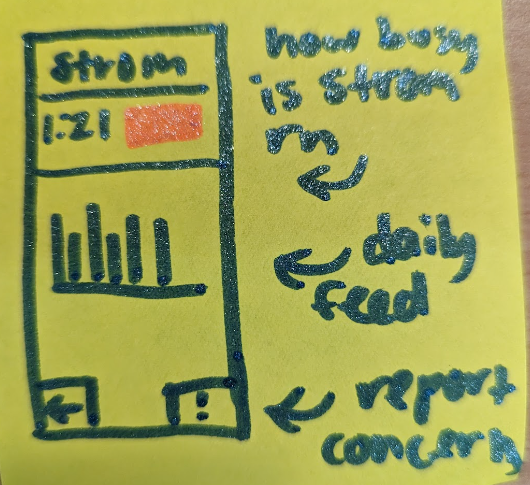 strom
1.21
how busy
is strom
rm
daily
feed
!
report
concern